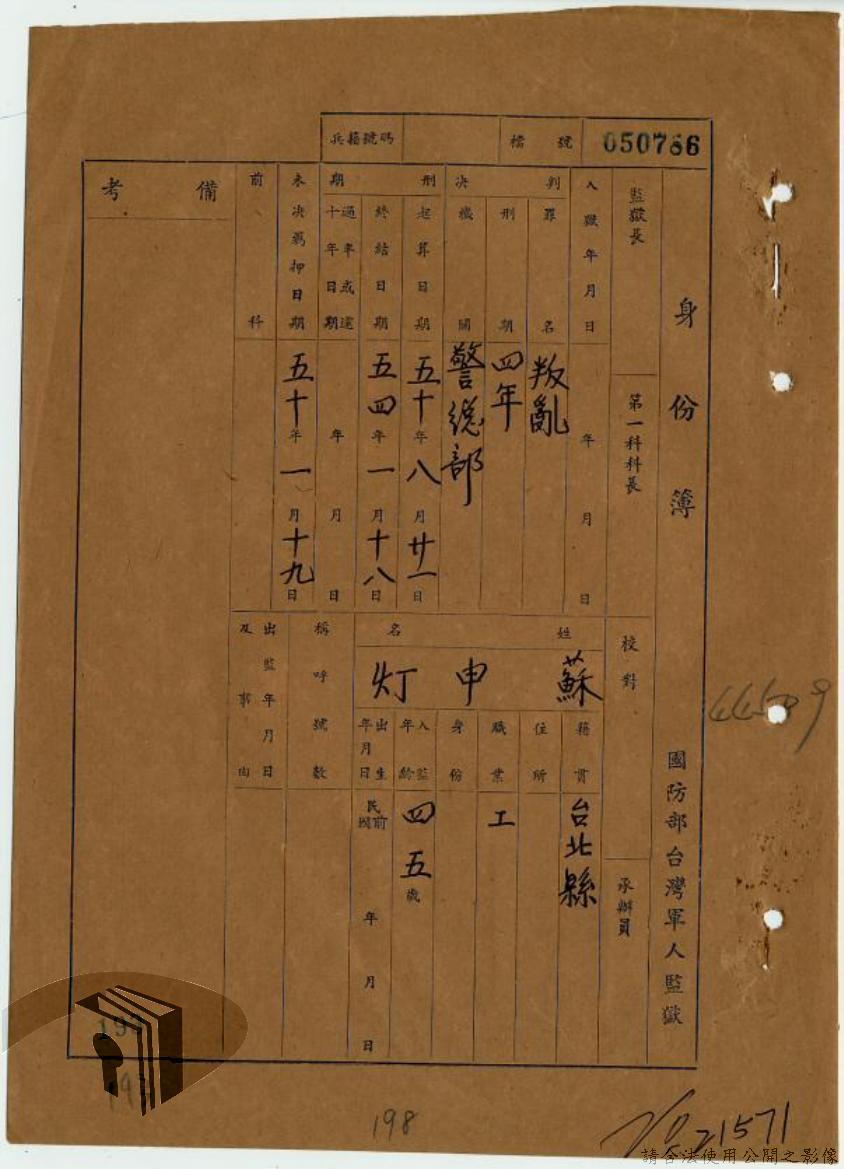 兵籍號碼
檔號 050766
身份簿 國防部台灣軍人監獄
監獄長
第一科科長
校對
承辦員
入獄年月日 年 月 日
判決
罪名 叛亂
刑期 四年
機關 警總部
刑期
起算日期 五十年八月廿一日
終結日期 五四年一月十八日
十年日期 年 月 日
未決羈押日期 五十年一月十九日
前科
備考
姓名 蘇申灯
籍貫 台北縣
住所
職業 工
身份
入監年齡 四五歲
出生年月日 民國前 年 月 日
稱呼號數
出監年月日
及事由
198
21571
請合法使用公開之影像